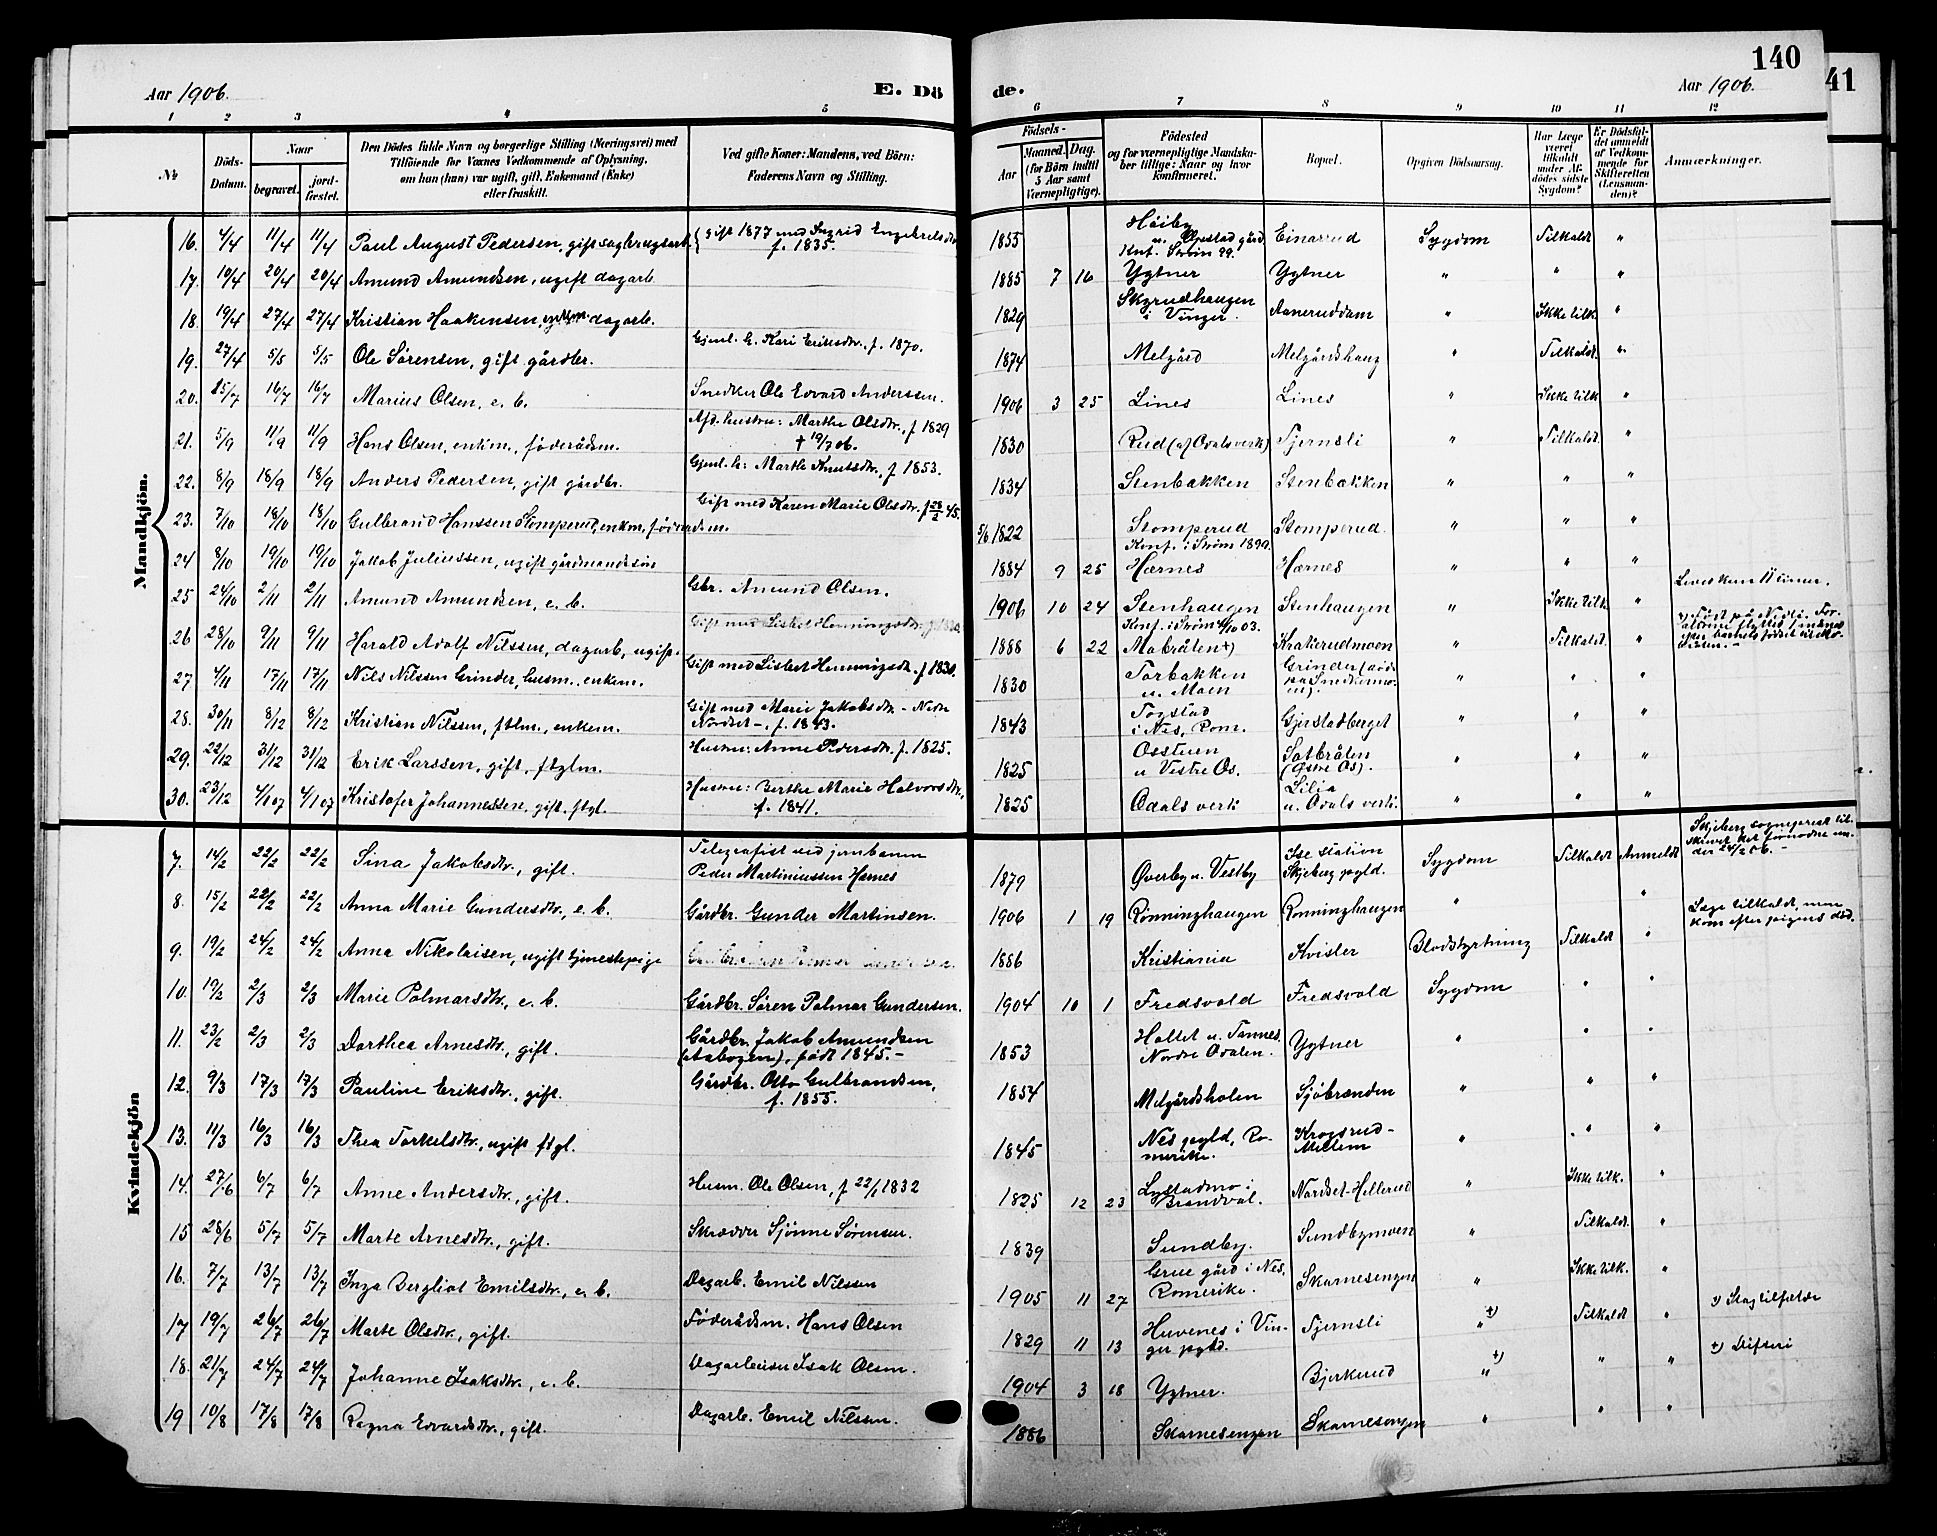 140
41
Aar 1906.
E. Dö
de.
Aar 1906.
1 2 3 4 5 6 7 8 9 10 11 12
№
Döds-Datum.
Naar
begravet.
jord-fæstet.
Den Dödes fulde Navn og borgerlige Stilling (Næringsvei) med
Tilföiende for Voxnes Vedkommende af Oplysning,
om han (hun) var ugift, gift, Enkemand (Enke)
eller fraskilt.
Ved gifte Koner: Mandens, ved Börn:
Faderens Navn og Stilling.
Födsels-
Aar
Maaned. Dag.
(for Börn indtil
5 Aar samt
Værnepligtige).
Födested
og for værnepligtige Mandska-
ber tillige: Naar og hvor
konfirmeret.
Bopæl.
Opgiven Dödsaarsag.
Har Læge
været
tilkaldt
under Af-
dödes sidste
Sygdom?
Er Dödsfal-
det anmeldt
af Vedkom-
mende for
Skifteretten
(Lensman-
den)?
Anmærkninger.
Mandkjön.
16. 4/4 11/4 11/4 Paul August Pedersen, gift sagbrugsarb. Gift 1877 med Ingrid Engebretsdtr. f. 1835. 1855 Høiby u. Opstad gård Knf. i Strøm 99. Einarrud Sygdom Tilkaldt "
17. 10/4 20/4 20/4 Amund Amundsen, ugift dagarb. 1885 7 16 Ygtner Ygtner " " "
18. 19/4 27/4 27/4 Kristian Haakensen, enkem. dagarb. 1829 Skyrudhaugen i Vinger. Aaneruddam " Ikke tilk. "
19. 27/4 5/5 5/5 Ole Sørensen, gift gårdbr. Gjenl. h. Kari Eriksdtr., f. 1870. 1874 Melgård Melgårdshaug " Tilkaldt. "
20. 25/7 16/7 16/7 Marius Olsen, e. b. Snedker Ole Edvard Anderssen. 1906 3 25 Lines Lines " Ikke tilk "
21. 5/9 11/9 11/9 Hans Olsen, enkm., føderådsm. Afd. hustru: Marthe Olsdtr., f 1829 † 19/7 06. 1830 Rud (af Odals verk) Tjernsli " Tilkaldt. "
22. 8/9 18/9 18/9 Anders Pedersen, gift gårdbr. Gjenl. h: Marthe Knutsdtr., f 1853. 1834 Stenbakken Stenbakken " " "
23. 7/10 18/10 18/10 Gulbrand Hanssen Stomperud, enkm., føderådsm. Gift med Karen Marie Olsdtr. f 28/2 45. 5/6 1822 Stomperud Stomperud. " " "
24 8/10 19/10 19/10 Jakob Juliussen, ugift gårdmandssøn 1884 9 25 Konf. i Strøm 1899. Hærnes Hærnes " " "
25 24/10 2/11 2/11 Amund Amundsen, e. b. Gbr. Amund Olsen. 1906 10 24 Stenhaugen Stenhaugen " Ikke tilk. " Levet kun 11 timer.
26 28/10 9/11 9/11 Harald Adolf Nilssen, dagarb., ugift. 1888 6 22 Konf. i Strøm 4/10 03. Mobråten +) Krakerudmoen " Tilkaldt. "
27 4/11 17/11 17/11 Nils Nilssen Grinder, husm., enkem. Gift med Lisbet Henningsdtr. f 1830. 1830 Torbakken u. Moen Grinder (død på Snedkermoen). " " "
28. 30/11 8/12 8/12 Kristian Nilssen, ftlm., enkem. Gift med Marie Jakobsdtr. - Nedre Nordset -, f. 1843. 1843 Fogstad i Nes, Rom. Gjerstadberget " " "
29. 22/12 31/12 31/12 Erik Larssen, gift, ftglm. Hustru: Anne Pedersdtr. f. 1825. 1825 Osstuen u Vestre Os. Satbråten (Østre Os). " " "
30. 23/12 4/1 07 4/1 07 Kristofer Johannessen, gift, ftgl. Hustru: Berthe Marie Halvorsdtr., f. 1841. 1825 Odals verk Lilia u. Odals verk. " " "
Kvindekjön
7. 14/2 22/2 22/2 Sina Jakobsdtr., gift. Telegrafist ved jernbanen Peder Martiniussen Hærnes 1879 Øverby u. Vestby Ise station Skjeberg pgld. Sygdom Tilkaldt Anmeldt
8. 15/2 22/2 22/2 Anna Marie Gundersdtr., e. b. Gårdbr. Gunder Martinsen. 1906 1 19 Rønninghaugen Rønninghaugen " " Læge tilkaldt, men kom efter pigens død.
9. 19/2 24/2 24/2 Anna Nikolaisen, ugift tjenestepige 1886 Kristiania Kvisler Blodstyrtning Tilkaldt "
10. 19/2 2/3 2/3 Marie Palmarsdtr., e. b. Gårdbr. Søren Palmar Gundersen. 1904 10 1 Fredsvold Fredsvold Sygdom " "
11. 23/2 2/3 2/3 Dorthea Arnesdtr., gift. Gårdbr. Jakob Amundsen (Aabogen), født 1845. - 1853 Holtet u. Tannes. Nordre Odalen. Ygtner " " "
12. 9/3 17/3 17/3 Pauline Eriksdtr., gift. Gårdbr. Otto Gulbrandsen, f. 1855. 1854 Melgårdsholen Sjøbrænden " " "
13. 11/3 16/3 16/3 Thea Torkelsdtr., ugift ftgl. 1845 Nes pgld, Romerike. Krogsrud-Mellem " " "
14. 27/6 6/7 6/7 Anne Andersdtr., gift. Husm. Ole Olsen, f 22/1 1832 1825 12 23 Lystadmo i Brandval. Nordset-Hellerud " Ikke tilk. "
15 28/6 5/7 5/7 Marte Arnesdtr., gift. Skrædder Sjønne Sørensen. 1839 Sundby. Sundbymoen " Tilkaldt. "
16. 7/7 13/7 13/7 Inga Bergliot Emilsdtr., e. b. Dagarb. Emil Nilssen 1905 11 27 Grue gård i Nes, Romerike. Skarnesengen " Ikke tilk. "
17 19/7 26/7 26/7 Marte Olsdtr., gift. Føderådsm. Hans Olsen 1829 11 13 Huvenes i Vinger pgld. Tjernsli " +) Tilkaldt " +) Slagtilfælde
18. 21/7 24/7 24/7 Johanne Isaksdtr., e. b. Dagarbeider Isak Olsen. 1904 3 18 Ygtner. Bjerkerud " +) " " +) Difteri
19 10/8 17/8 17/8 Ragna Edvardsdtr., gift. Dagarb. Emil Nilssen. 1886 Skarnesengen Skarnesengen " " "